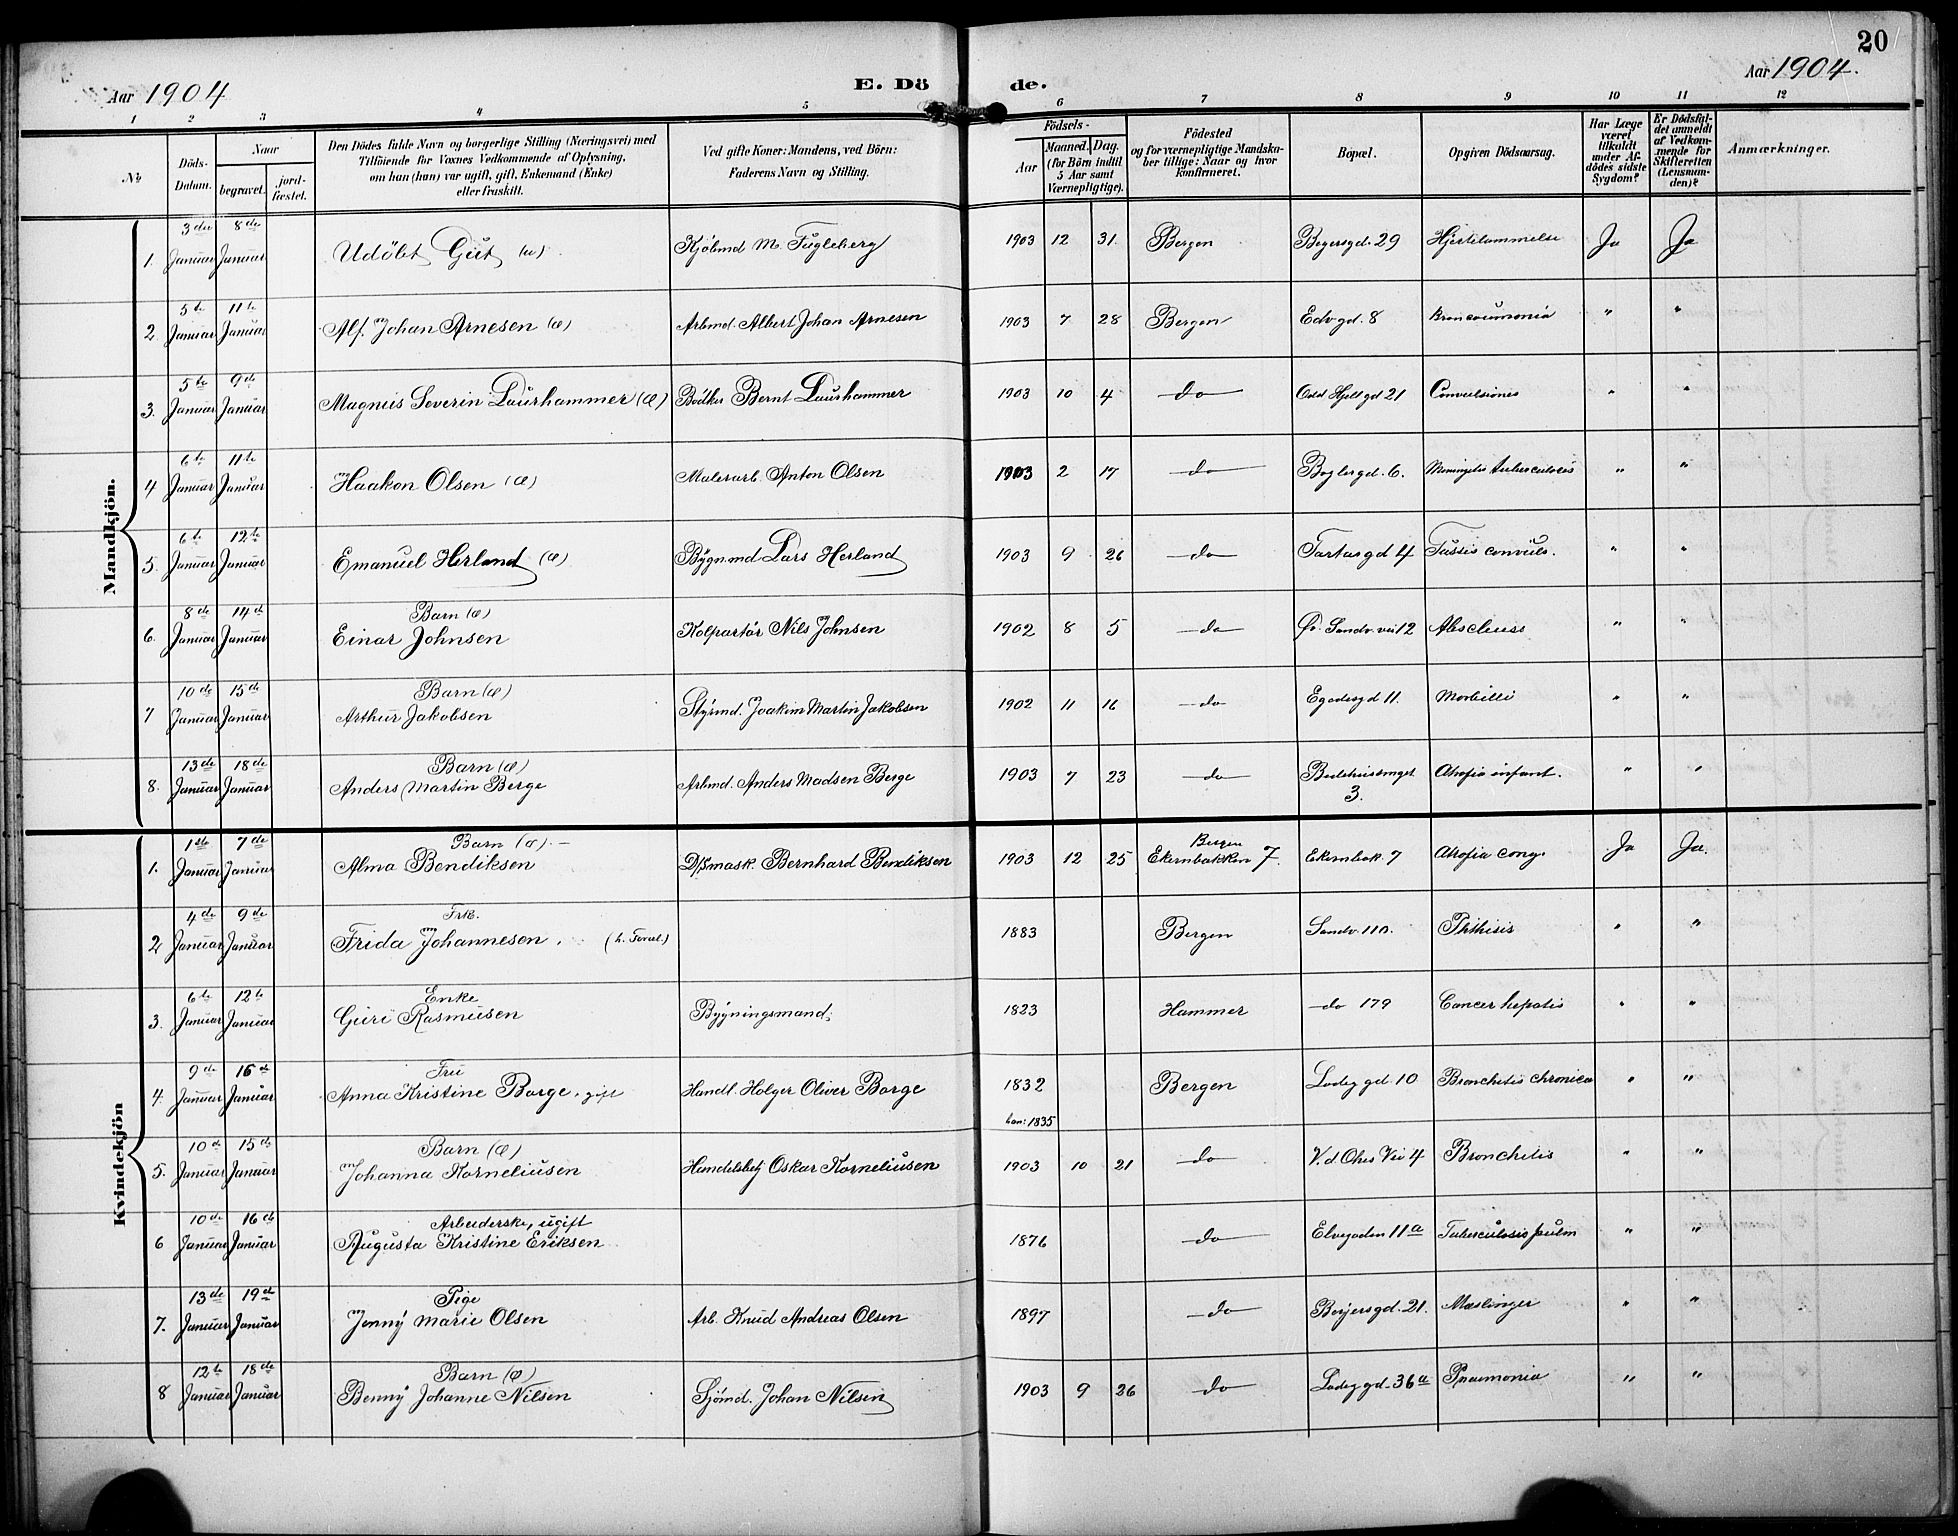 20
Aar 1904
E. Dö
de.
Aar 1904.
1 2 3 4 5 6 7 8 9 10 11 12
No
Döds-Datum.
Naar
begravet.
jord-fæstet.
Den Dödes fulde Navn og borgerlige Stilling (Næringsvei) med
Tilföiende for Voxnes Vedkommende af Oplysning,
om han (hun) var ugift, gift, Enkemand (Enke)
eller fraskilt.
Ved gifte Koner: Mandens, ved Börn:
Faderens Navn og Stilling.
Födsels-
Aar
Maaned. Dag.
(for Börn indtil
5 Aar samt
Værnepligtige).
Födested
og for værnepligtige Mandska-
ber tillige: Naar og hvor
konfirmeret.
Bopæl.
Opgiven Dödsaarsag.
Har Læge
været
tilkaldt
under Af-
dödes sidste
Sygdom?
Er Dödsfal-
det anmeldt
af Vedkom-
mende for
Skifteretten
(Lensman-
den)?
Anmærkninger.
Mandkjön.
1. 3die Januar 8de Januar Udöbt Gut (u) Kjöbmd M. Fugleberg 1903 12 31 Bergen Bøgersgd. 29 Hjertelammelse Ja Ja
2. 5te Januar 11te Januar Alf Johan Arnesen (æ) Arbmd. Albert Johan Arnesen 1903 7 28 Bergen Edv gd. 8 Broncoumonia " "
3. 5te Januar 9de Januar Magnus Severin Laurhammer (æ) Bödker Bernt Laurhammer 1903 10 4 do Hjeltgd 21 Convulsiones " "
4 6te Januar 11te Januar Haakon Olsen (æ) Malerarb. Anton Olsen 1903 2 17 do Boglergd. 6. Meningitis tuberculosis " "
5. 6te Januar 12te Januar Emanuel Herland (æ) Bygn.md Lars Herland 1903 9 26 do Tartargd 4 Tussis convuls. " "
6. 8de Januar 14de Januar Barn (æ)
Einar Johnsen Kolportör Nils Johnsen 1902 8 5 do Øv. Sandv. vei 12 Abscleuss " "
7 10de Januar 15de Januar Barn (æ)
Arthur Jakobsen Styrmd. Joakim Martin Jakobsen 1902 11 16 do Egedesgd 11. Morbilli " "
8. 13de Januar 18de Januar Barn (æ)
Anders Martin Berge Arbmd. Anders Madsen Berge 1903 7 23 do Bedehussmget
3. Atrofia infant. " "
Kvindekjön
1. 1ste Januar 7de Januar Barn
Alma Bendiksen D/Smask. Bernhard Bendiksen 1903 12 25 Bergen
Ekernbakken 7. Ekernbak. 7 Atrofia cong. Ja Ja.
2 4de Januar 9de Januar Frk.
Frida Johannesen. 1883 Bergen Sandv. 11 Phthisis " "
3. 6te Januar 12te Januar Enke
Guri Rasmusen Bygningsmand; 1823 Hammer do 179 Cancer hepatis " "
4. 9de Januar 16de Januar Fru
Anna Kristine Borge, gift Handl. Holger Oliver Borge 1832 Bergen Ladeggd. 10 Bronchitis chronica " "
1835
5. 10de Januar 15de Januar Barn (æ)
Johanna Korneliusen Handelsbetj Oskar Korneliusen 1903 10 21 do V. d Ohes Vei 4 Bronchitis " "
6 10de Januar 16de Januar Arbeiderske, ugift
Augusta Kristine Eriksen 1876 do Elvegaden 11a Tuberculosis pulm " "
7. 13de Januar 19de Januar Pige
Jenny Marie Olsen Arb. Knud Andreas Olsen 1897 do 21. Mæslinger " "
8 12te Januar 18de Januar Barn (æ)
Benny Johanne Nilsen Sjömd. Johan Nilsen 1903 9 26 do Ladeggd. 36a Pneumonia " "